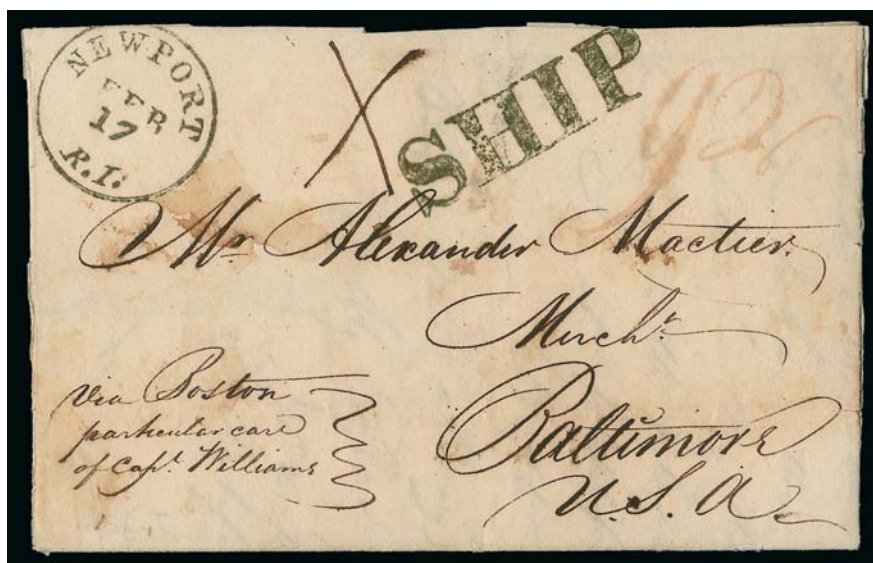 NEWPORT
FEB
17
R.I.
X
SHIP
Mr Alexander Mactier
Mercht
Baltimore
U.S.A
via Boston
particular care
of Capt. Williams